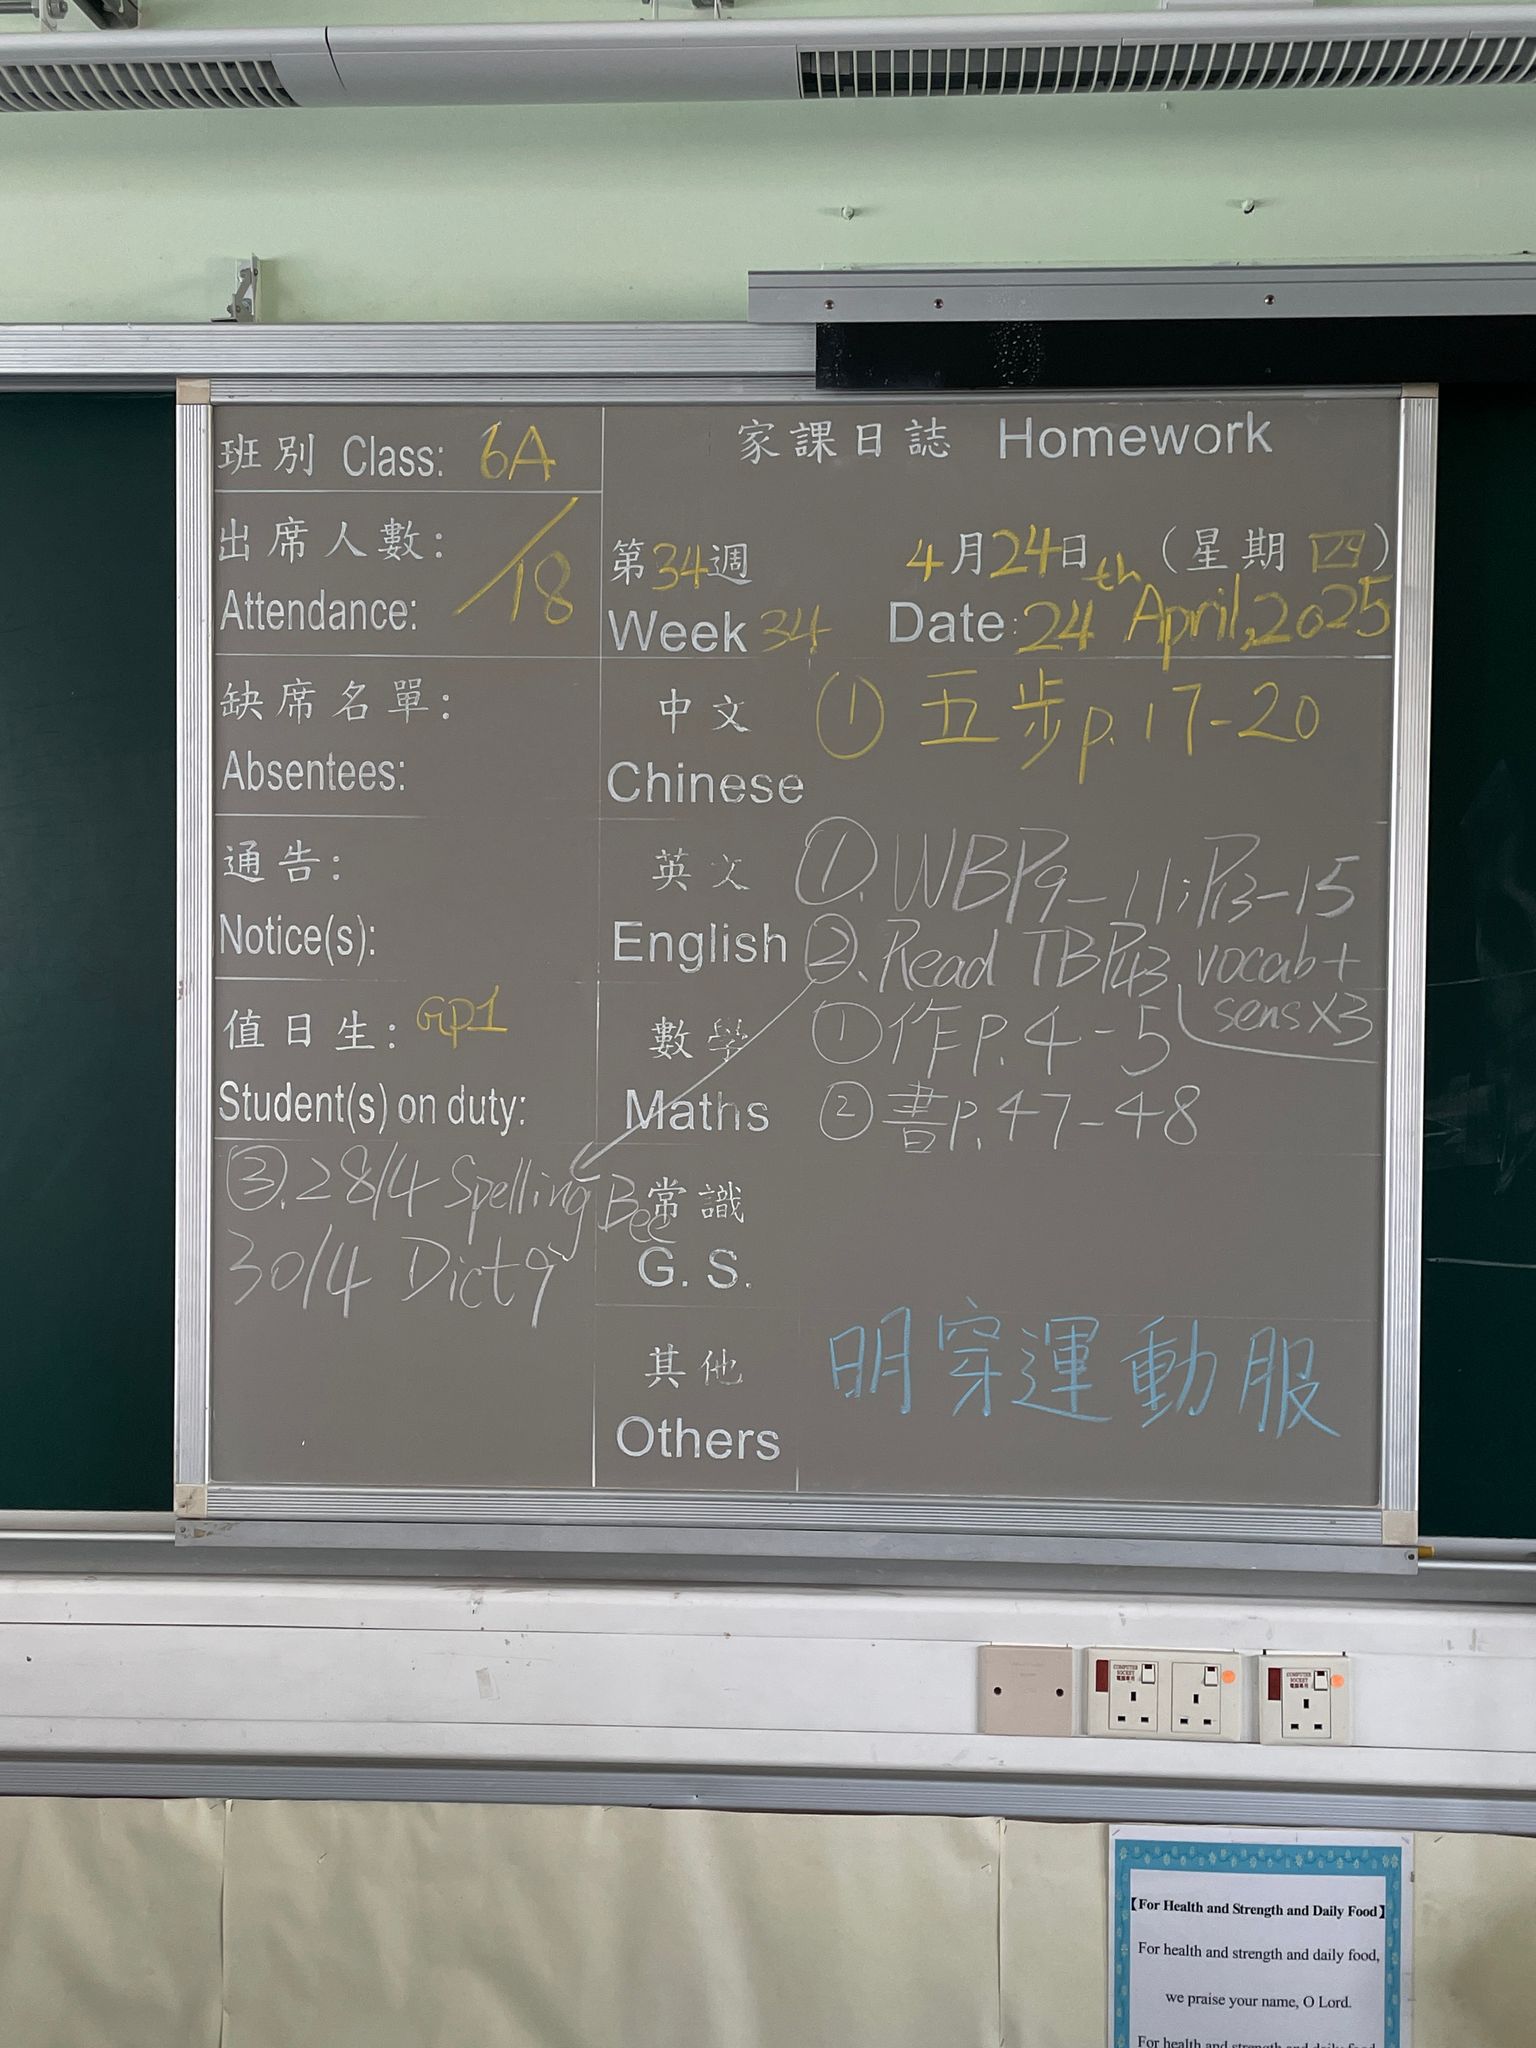 班別 Class: 6A
出席人數:
Attendance: /18
缺席名單:
Absentees:
通告:
Notice(s):
值日生: GP1
Student(s) on duty:
③. 28/4 Spelling Bee
30/4 Dict 9
家課日誌 Homework
第34週 4月24日 (星期四)
Week 34 Date: 24th April, 2025
中文 ① 五步p.17-20
Chinese
英文 ①. WBP9-11; P13-15
English ②. Read TBP43 vocab+
sens×3
數學 ①作p.4-5
Maths ②書p.47-48
常識
G. S.
其他 明穿運動服
Others
COMPUTER SOCKET
COMPUTER SOCKET
【For Health and Strength and Daily Food】
For health and strength and daily food,
we praise your name, O Lord.
For health and strength and daily food